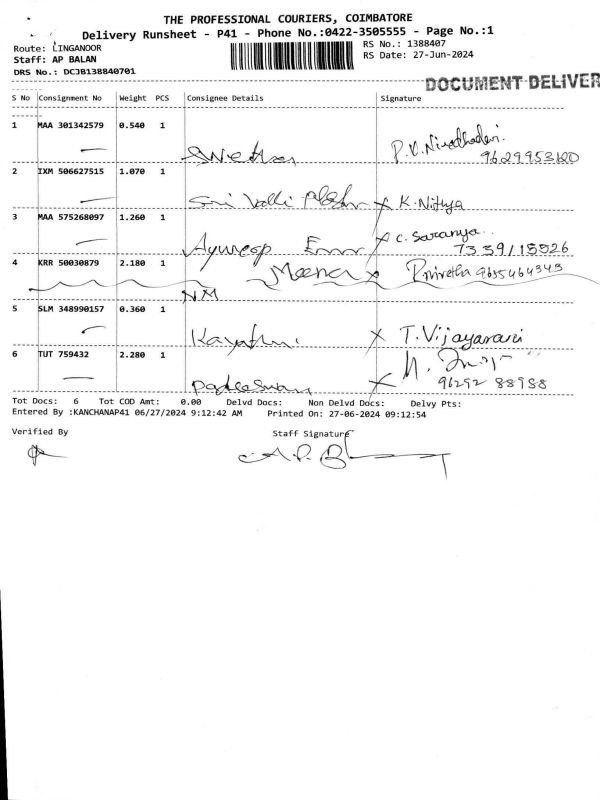 THE PROFESSIONAL COURIERS, COIMBATORE
Delivery Runsheet - P41 - Phone No.:0422-3505555 - Page No.:1
Route: LINGANOOR
RS No.: 1388407
Staff: AP BALAN
RS Date: 27-Jun-2024
DRS No.: DCJB138840701
DOCUMENT DELIVER
S No Consignment No Weight PCS Consignee Details Signature
1 MAA 301342579 0.540 1
Swetha
9629953120
2 IXM 506627515 1.070 1
Sri Valli K. Nithya
3 MAA 575268097 1.260 1
C. Saranya
4 KRR 50030879 2.180 1
Meena 9655464343
NM
5 SLM 348990157 0.360 1
T. Vijayarani
6 TUT 759432 2.280 1
96292 88988
Tot Docs: 6 Tot COD Amt: 0.00 Delvd Docs: Non Delvd Docs: Delvy Pts:
Entered By :KANCHANAP41 06/27/2024 9:12:42 AM Printed On: 27-06-2024 09:12:54
Verified By Staff Signature
A.P. B